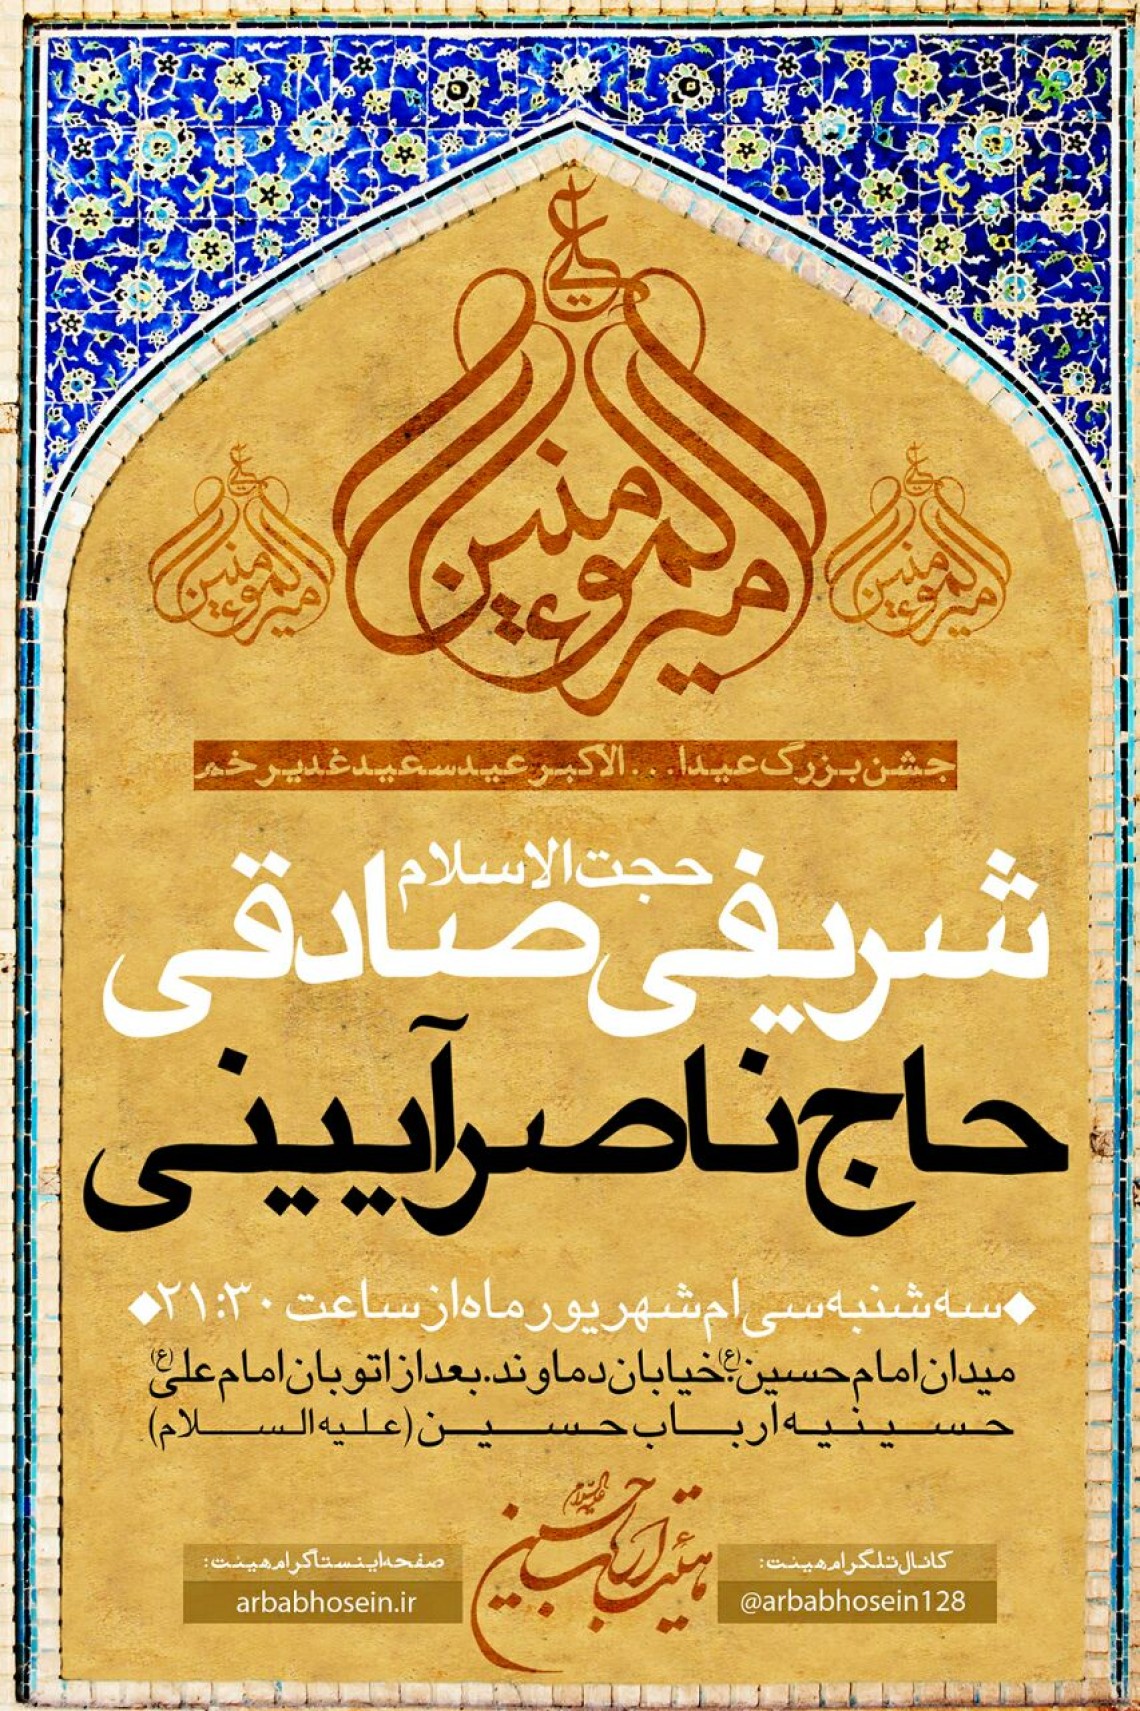 علی امیرالموءمنین
علی امیرالموءمنین
علی امیرالموءمنین
جشن بزرگ عیدا... الاکبر عید سعید غدیر خم
حجت الاسلام
شریفی صادقی
حاج ناصر آیینی
سه شنبه سی ام شهریور ماه از ساعت ۲۱:۳۰
میدان امام حسین(ع)؛ خیابان دماوند، بعد از اتوبان امام علی(ع)
حسینیه ارباب حسین (علیه السلام)
هیئت ارباب حسین علیه السلام
کانال تلگرام هیئت:
@arbabhosein128
صفحه اینستاگرام هیئت:
arbabhosein.ir